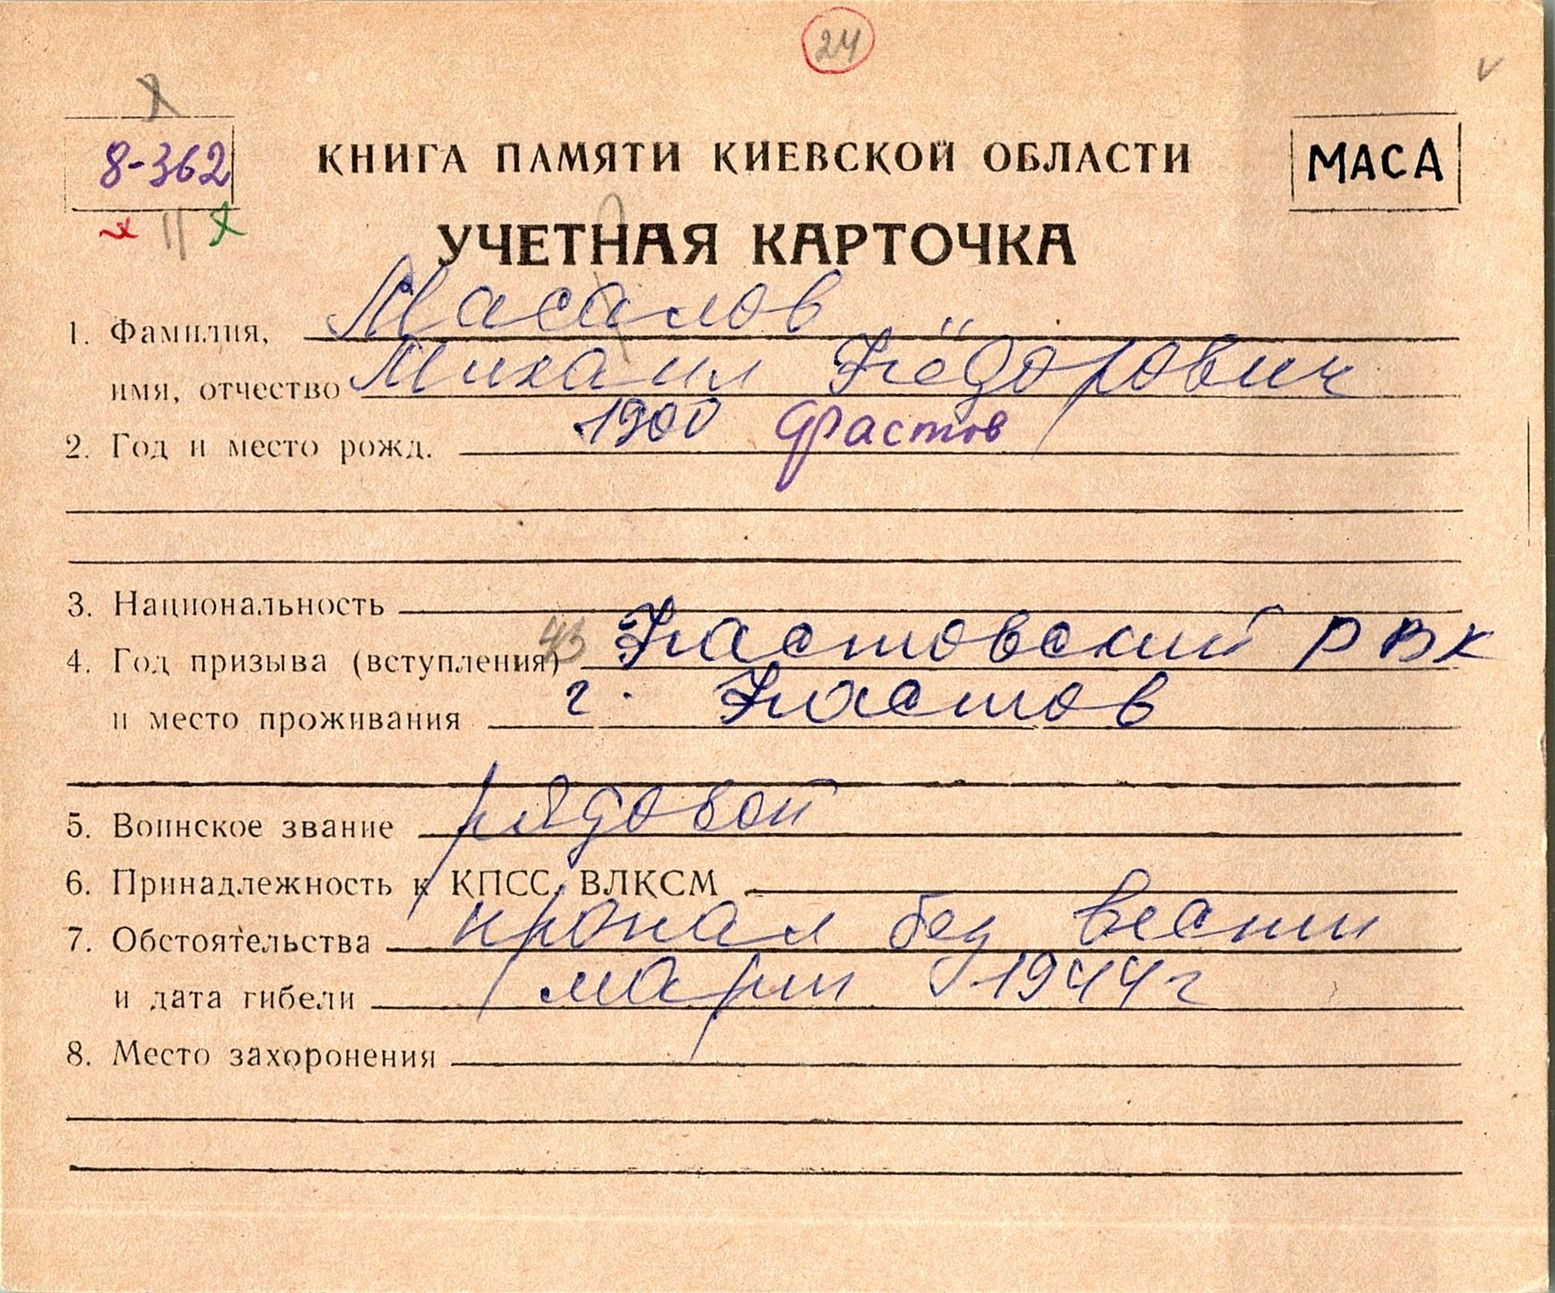 24
8-362
КНИГА ПАМЯТИ КИЕВСКОЙ ОБЛАСТИ
МАСА
УЧЕТНАЯ КАРТОЧКА
1. Фамилия, Масалов
имя, отчество Михаил Фёдорович
2. Год и место рожд. 1900 Фастов
3. Национальность
4. Год призыва (вступления) 43 Фастовский РВК
и место проживания г. Фастов
5. Воинское звание рядовой
6. Принадлежность к КПСС, ВЛКСМ
7. Обстоятельства пропал без вести
и дата гибели март 1944 г
8. Место захоронения